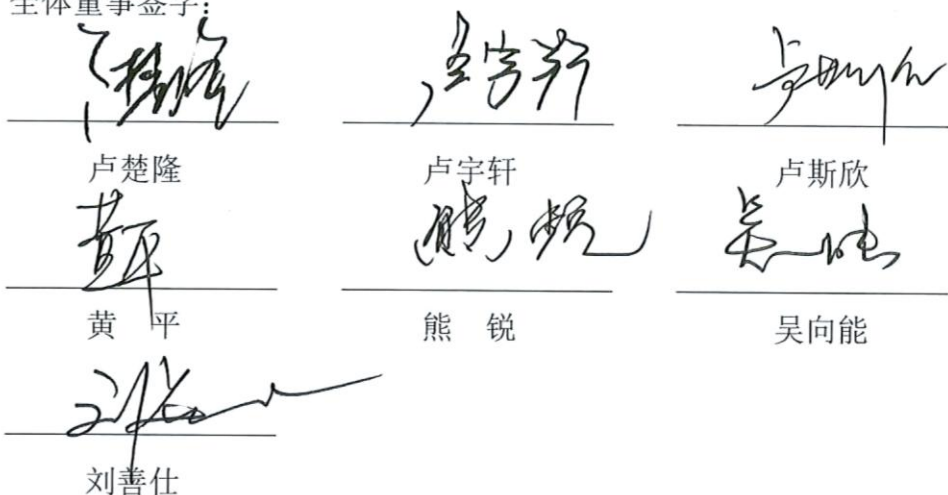 全体董事签字：
卢楚隆 卢宇轩 卢斯欣
黄 平 熊 锐 吴向能
刘善仕